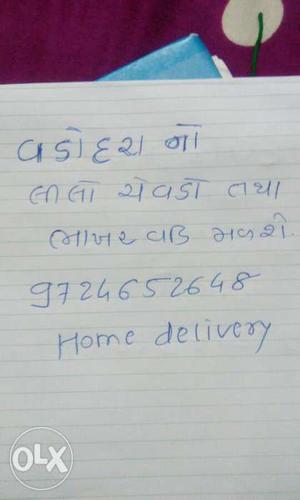 વડોદરા નો
લીલો ચેવડો તથા
ભાખર વડિ મળશે.
9724652648
Home delivery
OLX